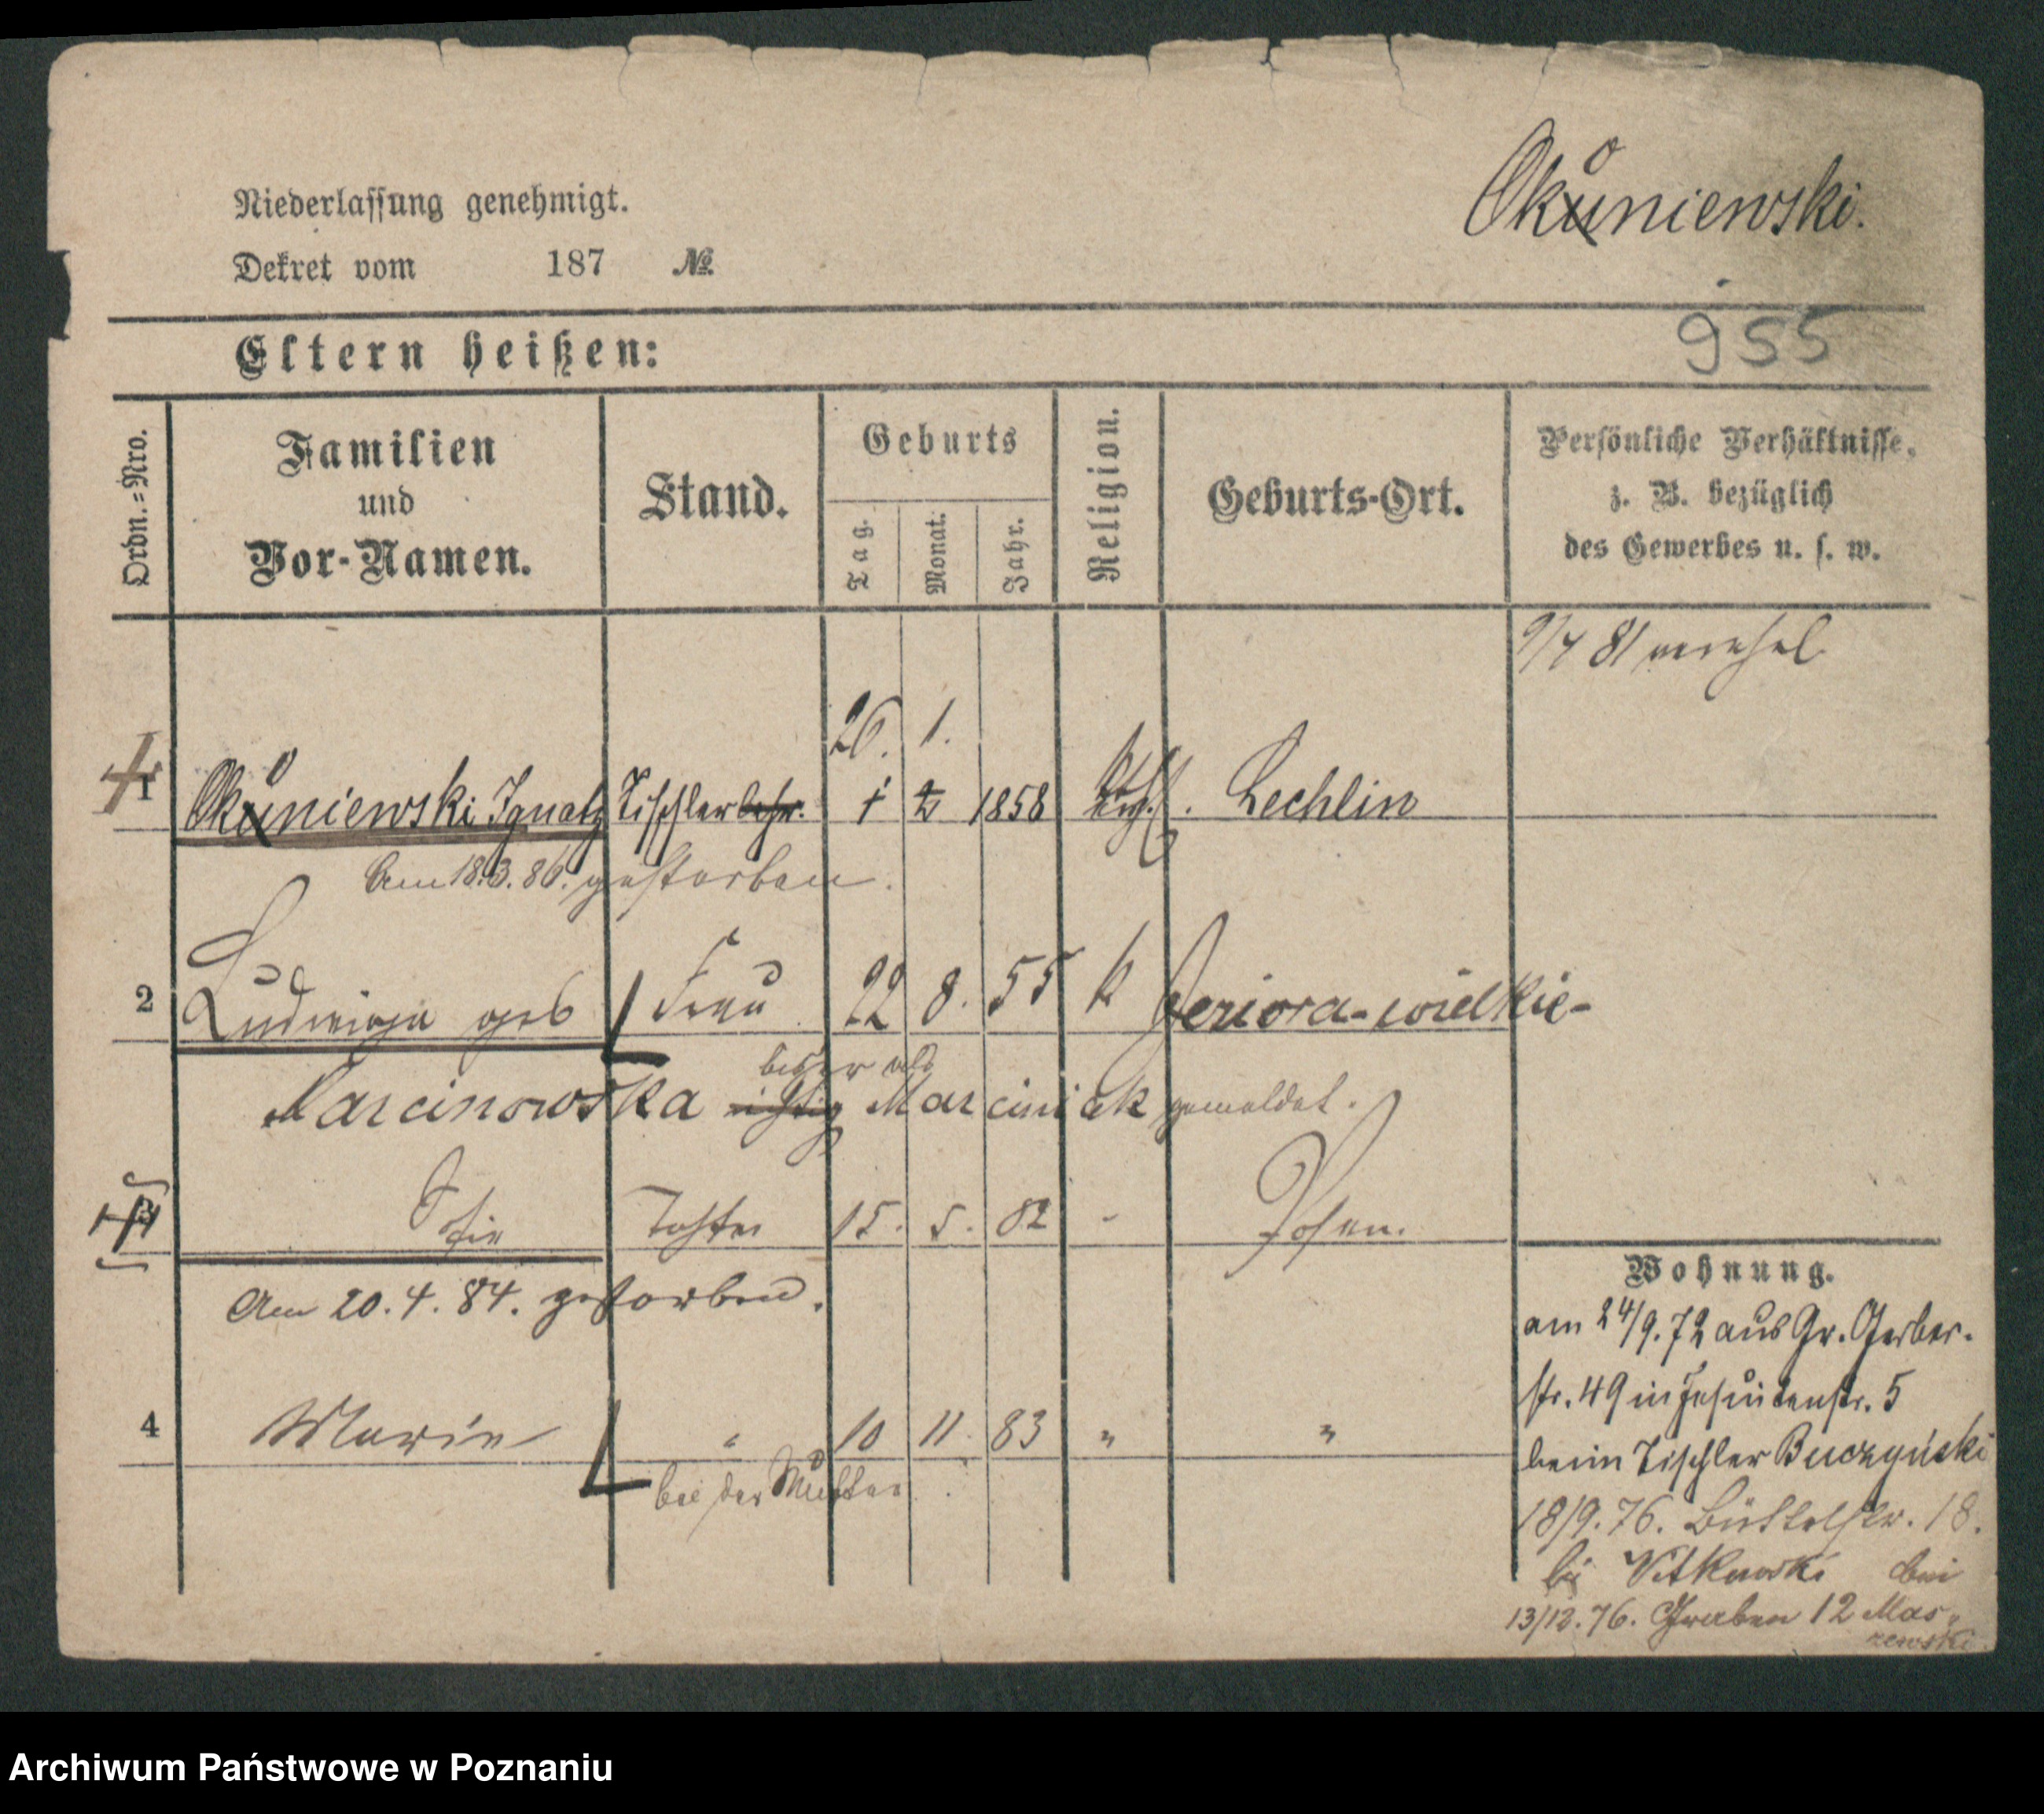 Okoniewski.
Niederlassung genehmigt.
Dekret vom 187 №
955
Eltern heißen:
Ordn.=Nro.
Familien
und
Vor-Namen.
Stand.
Geburts
Tag.
Monat.
Jahr.
Religion.
Geburts-Ort.
Persönliche Verhältnisse,
z. B. bezüglich
des Gewerbes u. s. w.
9/4 81
26. 1.
1 Okoniewski Ignatz Tischlerlehr. 1 2 1858 kath. Lechlin
Am 18.3.86. gestorben.
2 Ludwiga geb Frau 22 8. 55 k Jeziora-wielkie-
bisher als
Marcinowska richtig Marciniak gemeldet.
3 Sofie Tochter 15. 5. 82 - Posen.
Am 20.4.84. gestorben.
4 Marie " 10 11. 83 " "
bei der Mutter
Wohnung.
am 24/9.72 aus Gr. Gerber-
str. 49 in Jesuitenstr. 5
beim Tischler Buczyński
18/9.76. Büttelstr. 18.
bei Witkowski
13/12.76. Graben 12 Mas-
zewski
Archiwum Państwowe w Poznaniu